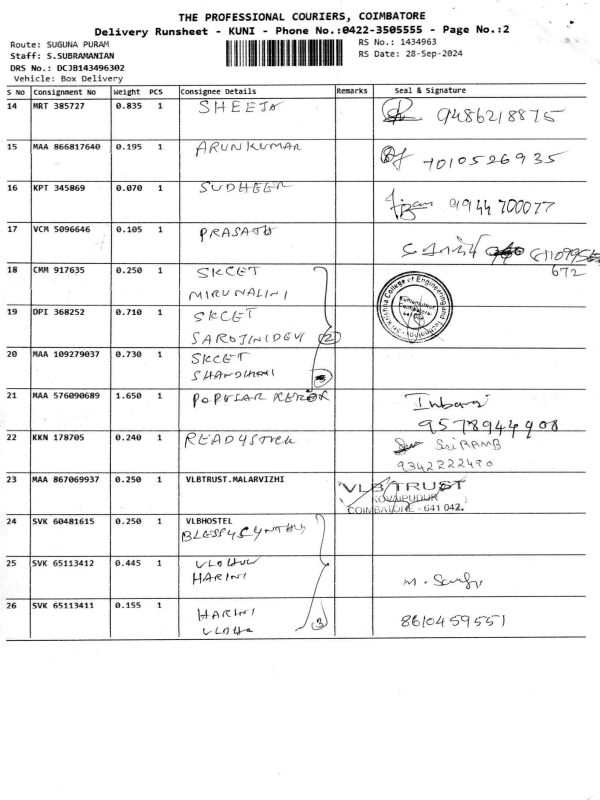 THE PROFESSIONAL COURIERS, COIMBATORE
Delivery Runsheet - KUNI - Phone No.:0422-3505555 - Page No.:2
Route: SUGUNA PURAM
RS No.: 1434963
Staff: S.SUBRAMANIAN
RS Date: 28-Sep-2024
DRS No.: DCJB143496302
Vehicle: Box Delivery
S No Consignment No Weight PCS Consignee Details Remarks Seal & Signature
14 MRT 385727 0.835 1 SHEEJA 9486218875
15 MAA 866817640 0.195 1 ARUNKUMAR 7010526935
16 KPT 345869 0.070 1 SUDHEER 9944700077
17 VCM 5096646 0.105 1 PRASATH
672
18 CMM 917635 0.250 1 SKCET
MIRUNALINI
Sri Krishna College of Engineering and Technology
19 DPI 368252 0.710 1 SKCET
SAROJINIDEVI 2
20 MAA 109279037 0.730 1 SKCET
21 MAA 576090689 1.650 1 POPULAR XEROX
9578944908
22 KKN 178705 0.240 1 READYSTICK SriRAMB
9342222490
23 MAA 867069937 0.250 1 VLBTRUST.MALARVIZHI
VLB TRUST
KOVAIPUDUR
COIMBATORE - 641 042.
24 SVK 60481615 0.250 1 VLBHOSTEL
25 SVK 65113412 0.445 1
HARINI
26 SVK 65113411 0.155 1 HARINI 8610459551
3